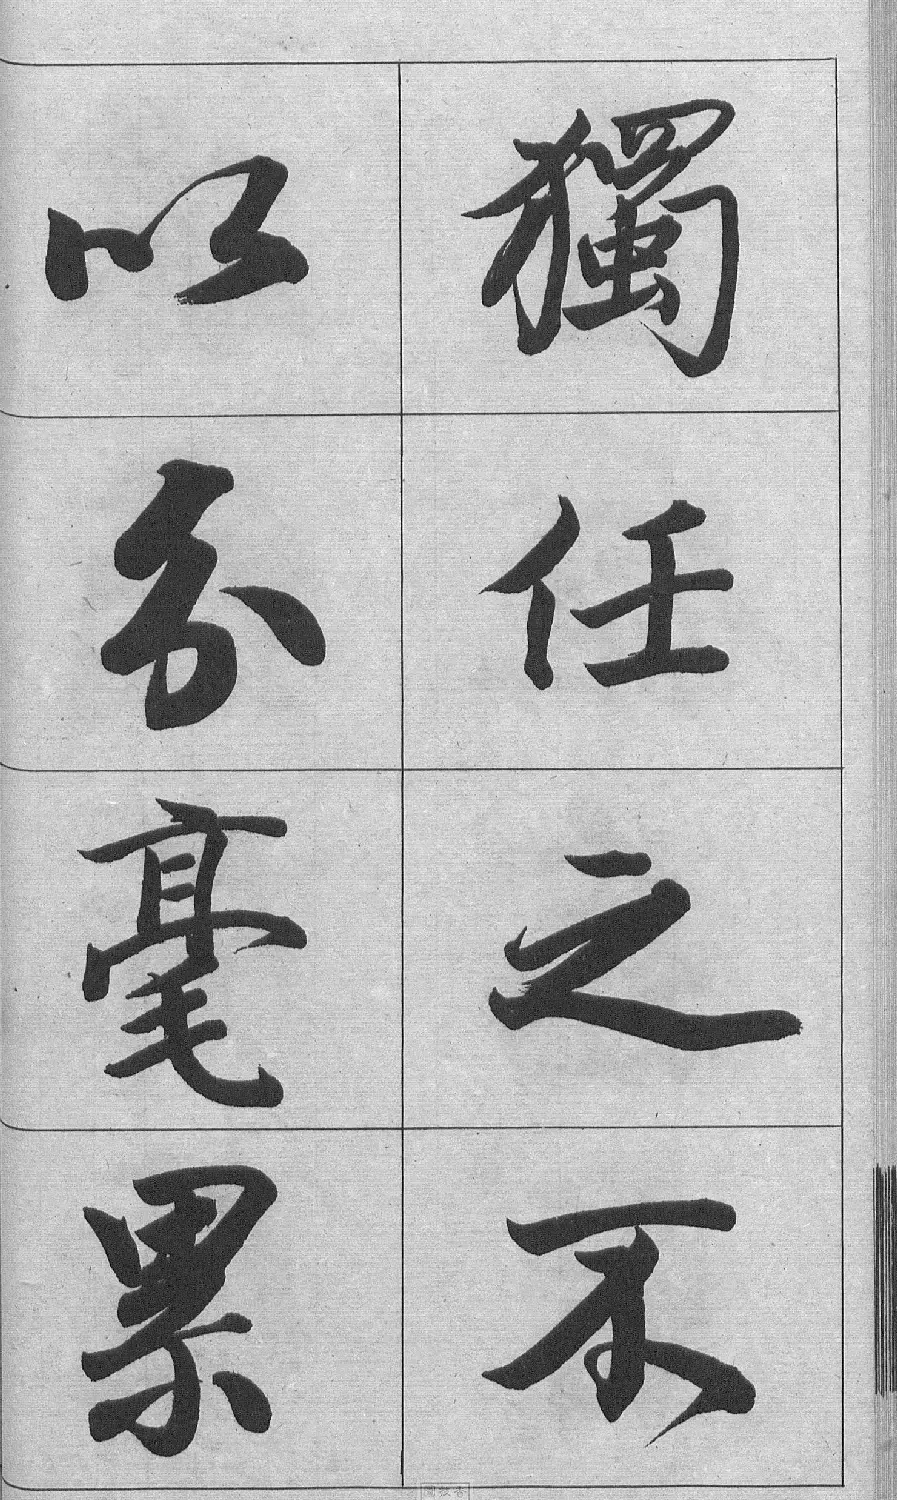 獨任之不
以分毫累